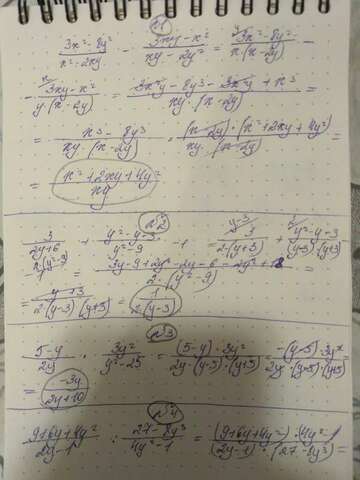 №1
(3x²-8y²)/(x²-2xy) - (3xy-x²)/(xy-2y²) = (3x²-8y²)/(x(x-2y)) -
- (3xy-x²)/(y(x-2y)) = (3x²y-8y³-3x²y+x³)/(xy·(x-2y)) =
= (x³-8y³)/(xy·(x-2y)) = ((x-2y)·(x²+2xy+4y²))/(xy·(x-2y)) =
= (x²+2xy+4y²)/(xy)
№2
3/(2y+6) + (y²-y-3)/(y²-9) - 1 = 3/(2·(y+3)) + (y²-y-3)/(y²-9) -
= (3y-9+2y²-2y-6-2y²+18)/(2·(y²-9)) =
= (y+3)/(2·(y-3)·(y+3)) = 1/(2(y-3))
№3
(5-y)/(2y) · (3y²)/(y²-25) = ((5-y)·3y²)/(2y·(y-5)·(y+5)) = (-(y-5)·3y²)/(2y·(y-5)·(y+5))
= (-3y)/(2y+10)
№4
(9+6y+4y²)/(2y-1) : (27-8y³)/(4y²-1) = ((9+6y+4y²)·(4y²-1))/((2y-1)·(27-8y³)) =